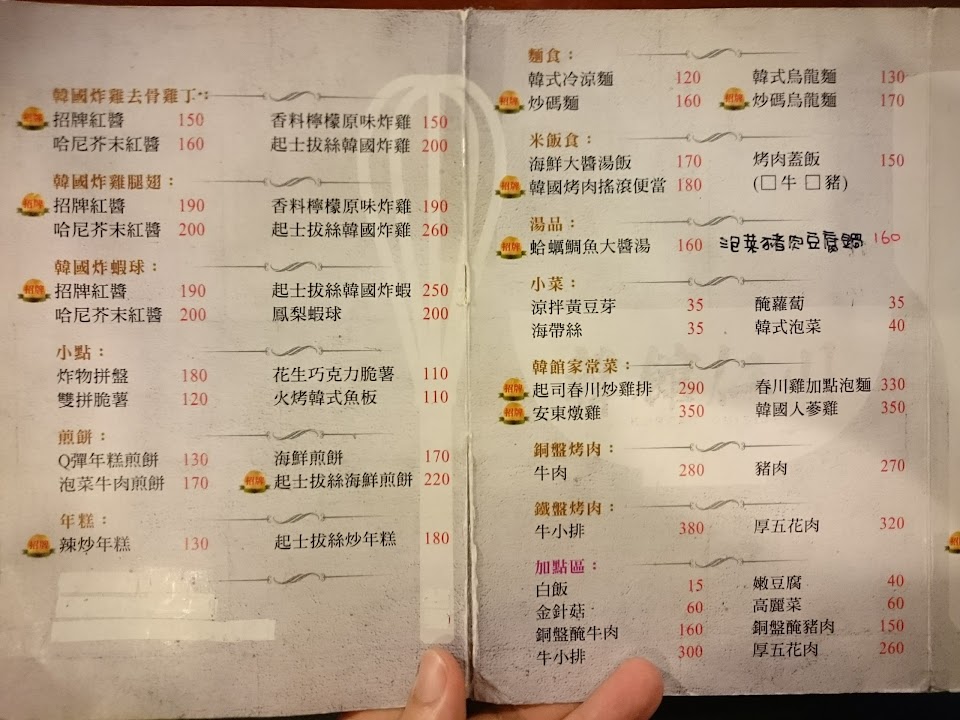 韓國炸雞去骨雞丁：
招牌 招牌紅醬 150 香料檸檬原味炸雞 150
哈尼芥末紅醬 160 起士拔絲韓國炸雞 200
韓國炸雞腿翅：
招牌 招牌紅醬 190 香料檸檬原味炸雞 190
哈尼芥末紅醬 200 起士拔絲韓國炸雞 260
韓國炸蝦球：
招牌 招牌紅醬 190 起士拔絲韓國炸蝦 250
哈尼芥末紅醬 200 鳳梨蝦球 200
小點：
炸物拼盤 180 花生巧克力脆薯 110
雙拼脆薯 120 火烤韓式魚板 110
煎餅：
Q彈年糕煎餅 130 海鮮煎餅 170
泡菜牛肉煎餅 170 招牌 起士拔絲海鮮煎餅 220
年糕：
招牌 辣炒年糕 130 起士拔絲炒年糕 180
麵食：
韓式冷涼麵 120 韓式烏龍麵 130
招牌 炒碼麵 160 招牌 炒碼烏龍麵 170
米飯食：
海鮮大醬湯飯 170 烤肉蓋飯 150
招牌 韓國烤肉搖滾便當 180 (□牛 □豬)
湯品：
招牌 蛤蠣鯛魚大醬湯 160 泡菜豬肉豆腐鍋 160
小菜：
涼拌黃豆芽 35 醃蘿蔔 35
海帶絲 35 韓式泡菜 40
韓館家常菜：
招牌 起司春川炒雞排 290 春川雞加點泡麵 330
招牌 安東燉雞 350 韓國人蔘雞 350
銅盤烤肉：
牛肉 280 豬肉 270
鐵盤烤肉：
牛小排 380 厚五花肉 320
加點區：
白飯 15 嫩豆腐 40
金針菇 60 高麗菜 60
銅盤醃牛肉 160 銅盤醃豬肉 150
牛小排 300 厚五花肉 260